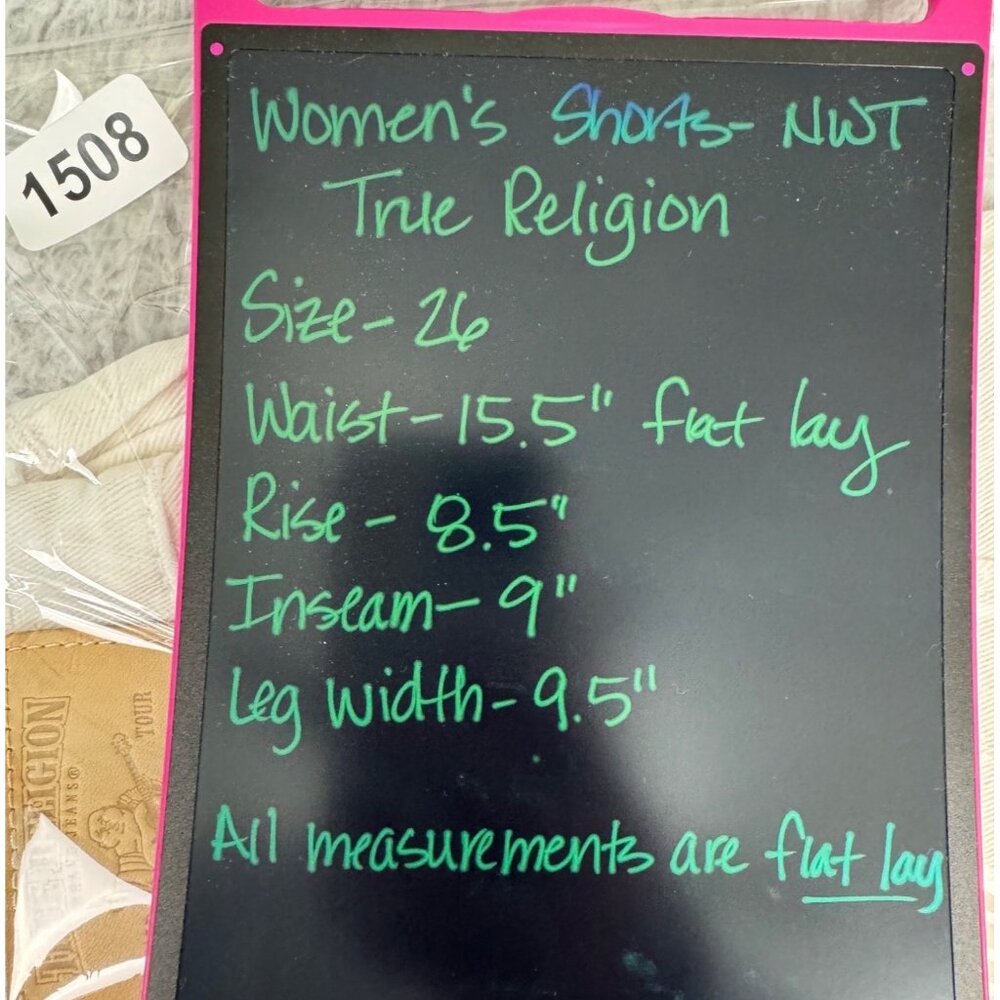 1508
Women's Shorts- NWT
True Religion
Size- 26
Waist-15.5" flat lay
Rise - 8.5"
Inseam- 9"
Leg Width- 9.5"
All measurements are flat lay
TOUR
LIGION
JEANS®